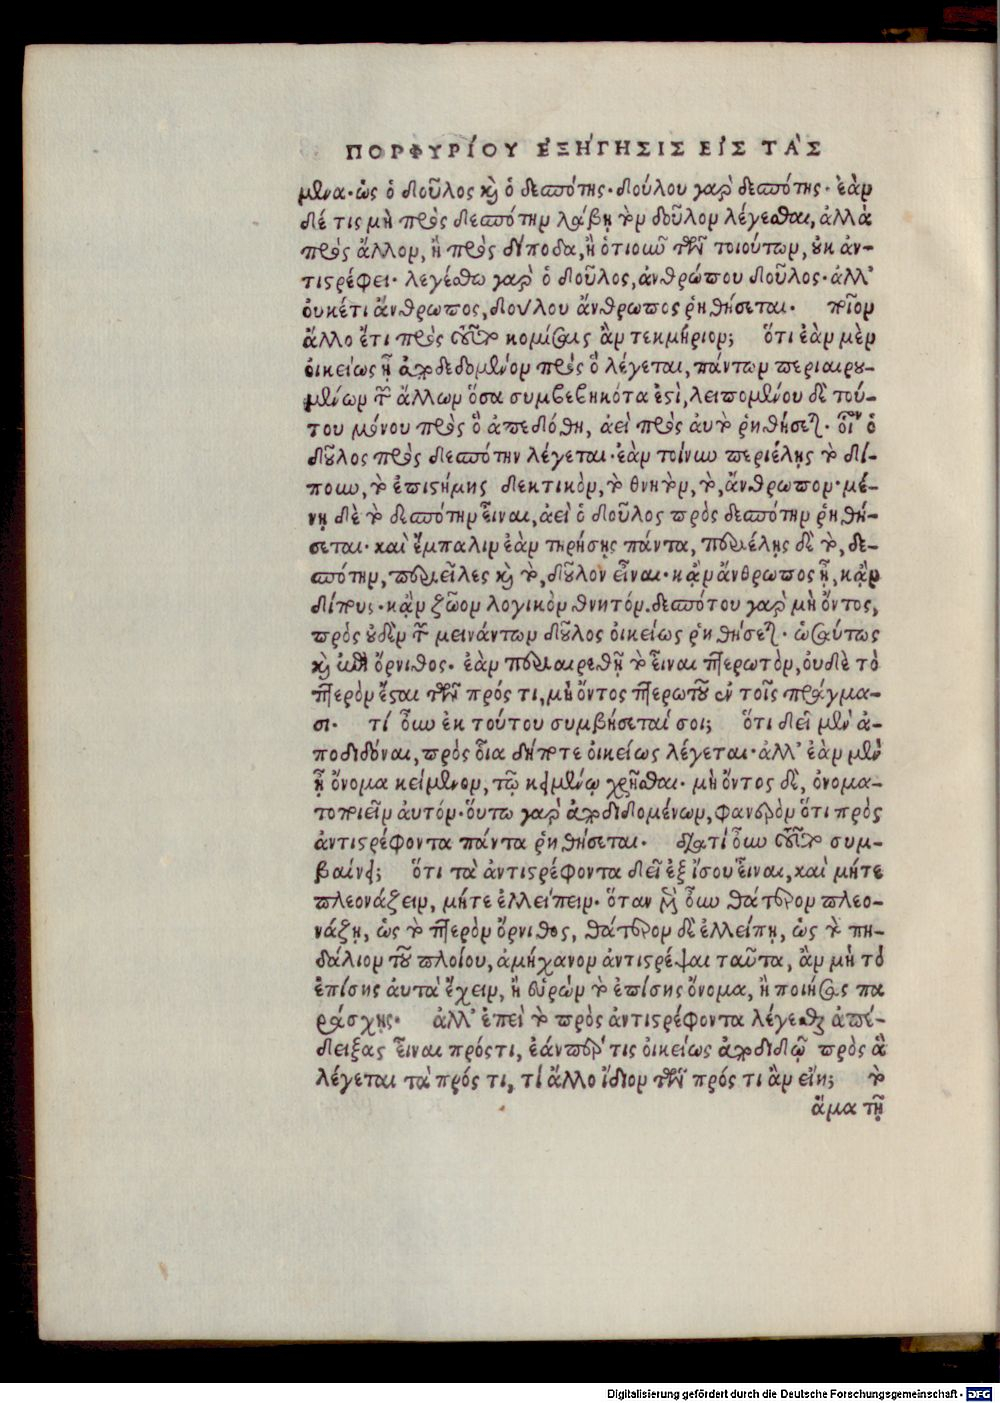 ΠΟΡΦΥΡΊΟΥ ἘΞΉΓΗΣΙΣ ΕἸΣ ΤᾺΣ
μενα· ὡς ὁ δοῦλος καὶ ὁ δεσπότης· δούλου γὰρ δεσπότης· ἐὰν
δέ τις μὴ πρὸς δεσπότην λάβῃ τὸν δοῦλον λέγεσθαι, ἀλλὰ
πρὸς ἄλλον, ἢ πρὸς δίποδα, ἢ ὁτιοῦν τῶν τοιούτων, οὐκ ἀν-
τιστρέφει· λεγέσθω γὰρ ὁ δοῦλος, ἀνθρώπου δοῦλος· ἀλλ'
ὀυκέτι ἄνθρωπος, δούλου ἄνθρωπος ῥηθήσεται· ποῖον
ἄλλο ἔτι πρὸς τοῦτο κομίσαις ἂν τεκμήριον; ὅτι ἐὰν μὲν
ὀικείως ᾖ ἀποδεδομένον πρὸς ὃ λέγεται, πάντων περιαιρου-
μένων τῶν ἄλλων ὅσα συμβεβηκότα ἐστὶ, λειπομένου δὲ τού-
του μόνου πρὸς ὃ ἀπεδόθη, ἀεὶ πρὸς ἀυτὸ ῥηθήσεται· οἷον ὁ
δοῦλος πρὸς δεσπότην λέγεται· ἐὰν τοίνυν περιέλῃς τὸ δί-
πουν, τὸ ἐπιστήμης δεκτικὸν, τὸ θνητὸν, τὸ, ἄνθρωπον· μέ-
νῃ δὲ τὸ δεσπότην εἶναι, ἀεὶ ὁ δοῦλος πρὸς δεσπότην ῥηθή-
σεται· καὶ ἔμπαλιν ἐὰν τηρήσῃς πάντα, περιέλῃς δὲ τὸ, δε-
σπότην, περιεῖλες καὶ τὸ, δοῦλον εἶναι· κἂν ἄνθρωπος ᾖ, κἂν
δίπους· κἂν ζῶον λογικὸν θνητόν. δεσπότου γὰρ μὴ ὄντος,
πρὸς οὐδὲν τῶν μεινάντων δοῦλος ὀικείως ῥηθήσεται· ὡσαύτως
καὶ ἐπὶ ὄρνιθος· ἐὰν περιαιρεθῇ τὸ εἶναι πτερωτὸν, ὀυδὲ τὸ
πτερὸν ἔσται τῶν πρός τι, μὴ ὄντος πτερωτοῦ ἐν τοῖς πράγμα-
σι· τί οὖν ἐκ τούτου συμβήσεταί σοι; ὅτι δεῖ μὲν ἀ-
ποδιδόναι, πρὸς οἷα δήποτε ὀικείως λέγεται· ἀλλ' ἐὰν μὲν
ᾖ ὄνομα κείμενον, τῷ κειμένῳ χρῆσθαι· μὴ ὄντος δὲ, ὀνομα-
τοποιεῖν ἀυτόν· ὅυτω γὰρ ἀποδιδομένων, φανερὸν ὅτι πρὸς
ἀντιστρέφοντα πάντα ῥηθήσεται· διατί οὖν τοῦτο συμ-
βαίνει; ὅτι τὰ ἀντιστρέφοντα δεῖ ἐξ ἴσου εἶναι, καὶ μήτε
πλεονάζειν, μήτε ἐλλείπειν· ὅταν μὲν οὖν θάτερον πλεο-
νάζῃ, ὡς τὸ πτερὸν ὄρνιθος, θάτερον δὲ ἐλλείπῃ, ὡς τὸ πη-
δάλιον τοῦ πλοίου, ἀμήχανον ἀντιστρέψαι ταῦτα, ἂν μὴ τὸ
ἐπίσης ἀυτὰ ἔχειν, ἢ εὑρὼν τὸ ἐπίσης ὄνομα, ἢ ποιήσας πα
ράσχῃς· ἀλλ' ἐπεὶ τὸ πρὸς ἀντιστρέφοντα λέγεσθαι ἀπέ-
δειξας εἶναι πρόςτι, ἐάνπερ τις ὀικείως ἀποδιδῷ πρὸς ἃ
λέγεται τὰ πρός τι, τί ἄλλο ἴδιον τῶν πρός τι ἂν εἴη; τὸ
ἅμα τῇ
Digitalisierung gefördert durch die Deutsche Forschungsgemeinschaft · DFG